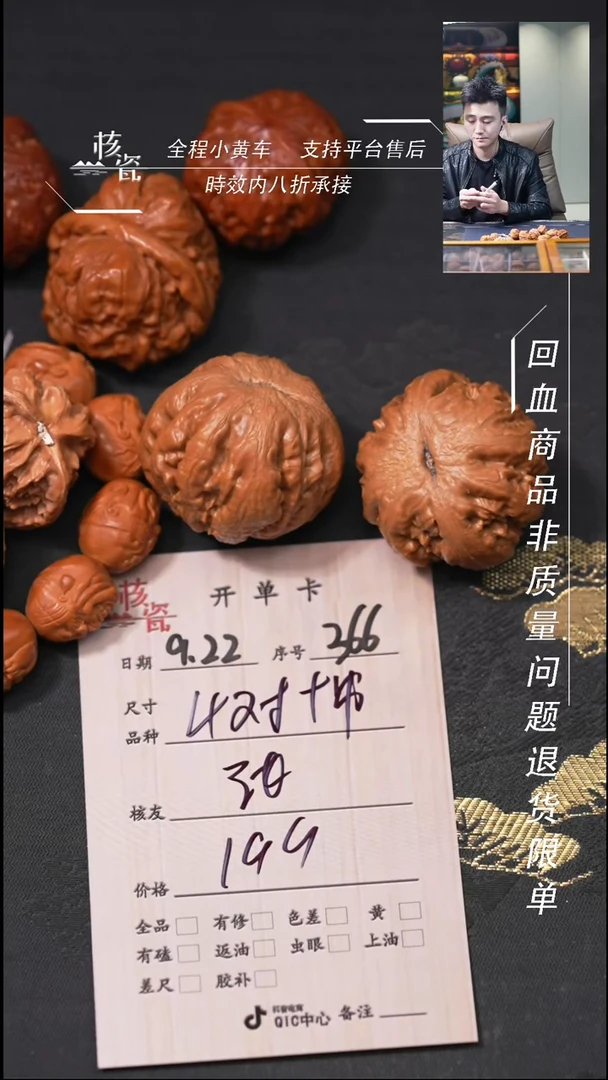 核瓷
全程小黄车 支持平台售后
時效内八折承接
回血商品非质量问题退货限单
核瓷
开单卡
日期 9.22 序号 366
尺寸
品种 4对十
核友
价格 199
全品 有修 色差 黄
有磕 返油 虫眼 上油
差尺 胶补
抖音电商
QIC中心 备注